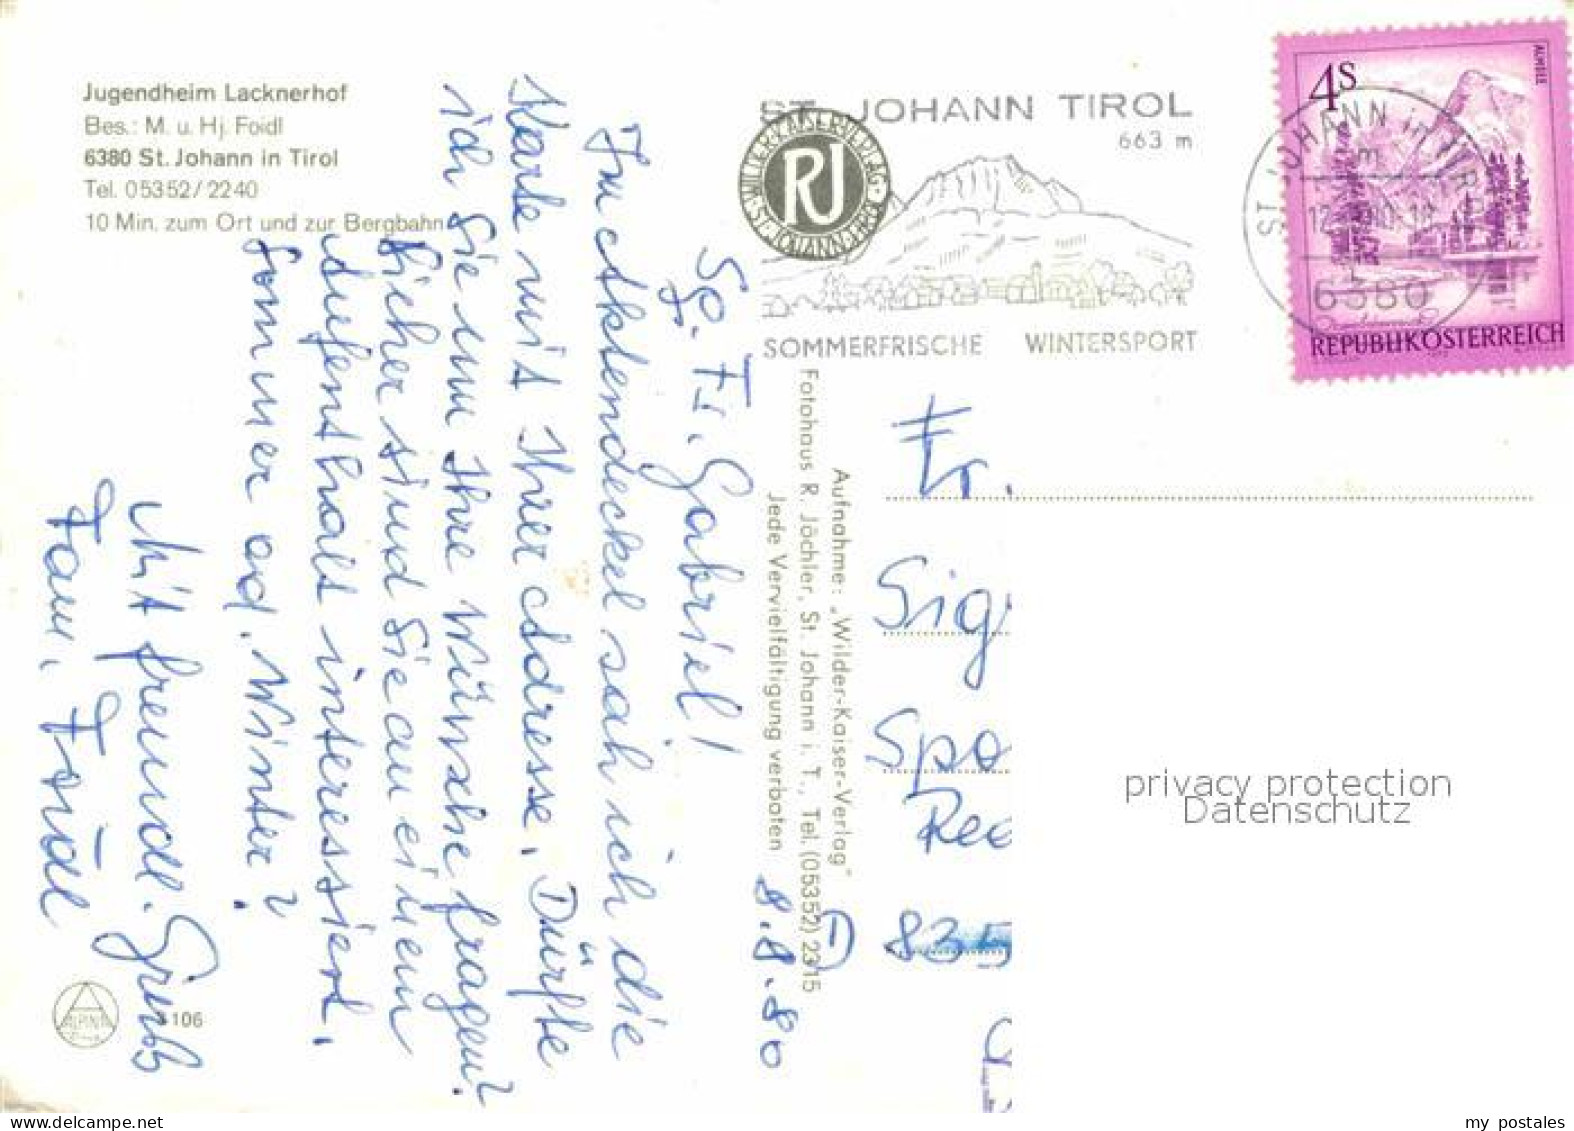 Jugendheim Lacknerhof
Bes.: M. u. Hj. Foidl
6380 St. Johann in Tirol
Tel. 05352/2240
10 Min. zum Ort und zur Bergbahn
ST. JOHANN TIROL
663 m
WILDER-KAISERVERLAG · ST. JOHANN-TIROL ·
RJ
SOMMERFRISCHE WINTERSPORT
4S
ALMSEE
REPUBLIK ÖSTERREICH
ST. JOHANN in TIROL
6380
8.8.80
Sg. Fr. Gabriel!
Im Aktendeckel sah ich die
Karte mit Ihrer Adresse. Dürfte
ich Sie um Ihre Wünsche fragen?
Sicher sind Sie an einem
Aufenthalt interessiert,
Sommer od. Winter?
Mit freundl. Grüß
Fam. Foidl
Aufnahme: „Wilder-Kaiser-Verlag"
Fotohaus R. Jöchler, St. Johann i. T., Tel. (05352) 2315
Jede Vervielfältigung verboten
Fr.
Sig
Spo
Ree
835
ALPINA
106
privacy protection
Datenschutz
www.delcampe.net
my_postales